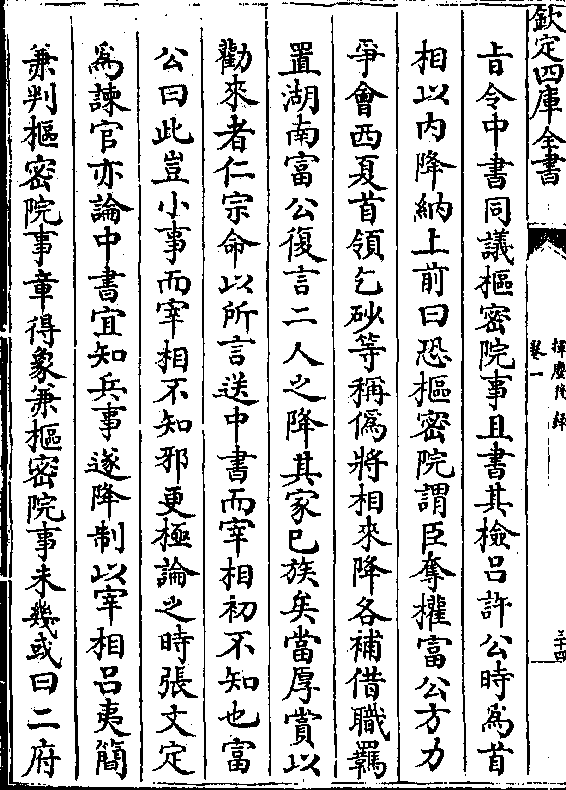 欽定四庫全書
揮麈後錄
卷一
三十四
旨令中書同議樞密院事且書其檢吕許公時為首
相以内降納上前曰恐樞密院謂臣奪權富公方力
爭會西夏首領乞砂等稱偽將相來降各補借職羈
置湖南富公復言二人之降其家已族矣當厚賞以
勸來者仁宗命以所言送中書而宰相初不知也富
公曰此豈小事而宰相不知邪更極論之時張文定
為諫官亦論中書宜知兵事遂降制以宰相吕夷簡
兼判樞密院事章得象兼樞密院事未幾或曰二府